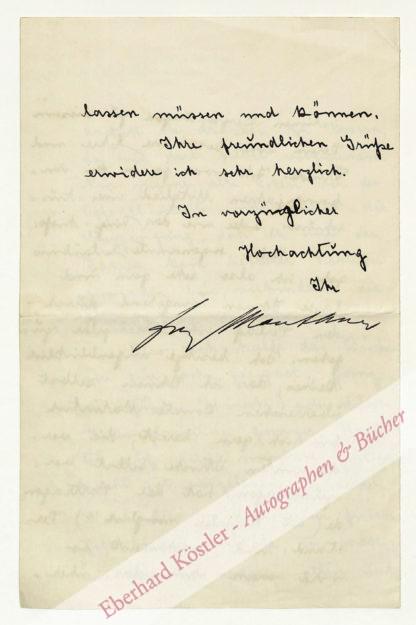 lassen müssen und können.
Ihre freundlichen Grüße
erwidere ich sehr herzlich.
In vorzüglicher
Hochachtung
Ihr
Fritz Mauthner
Eberhard Köstler - Autographen & Bücher